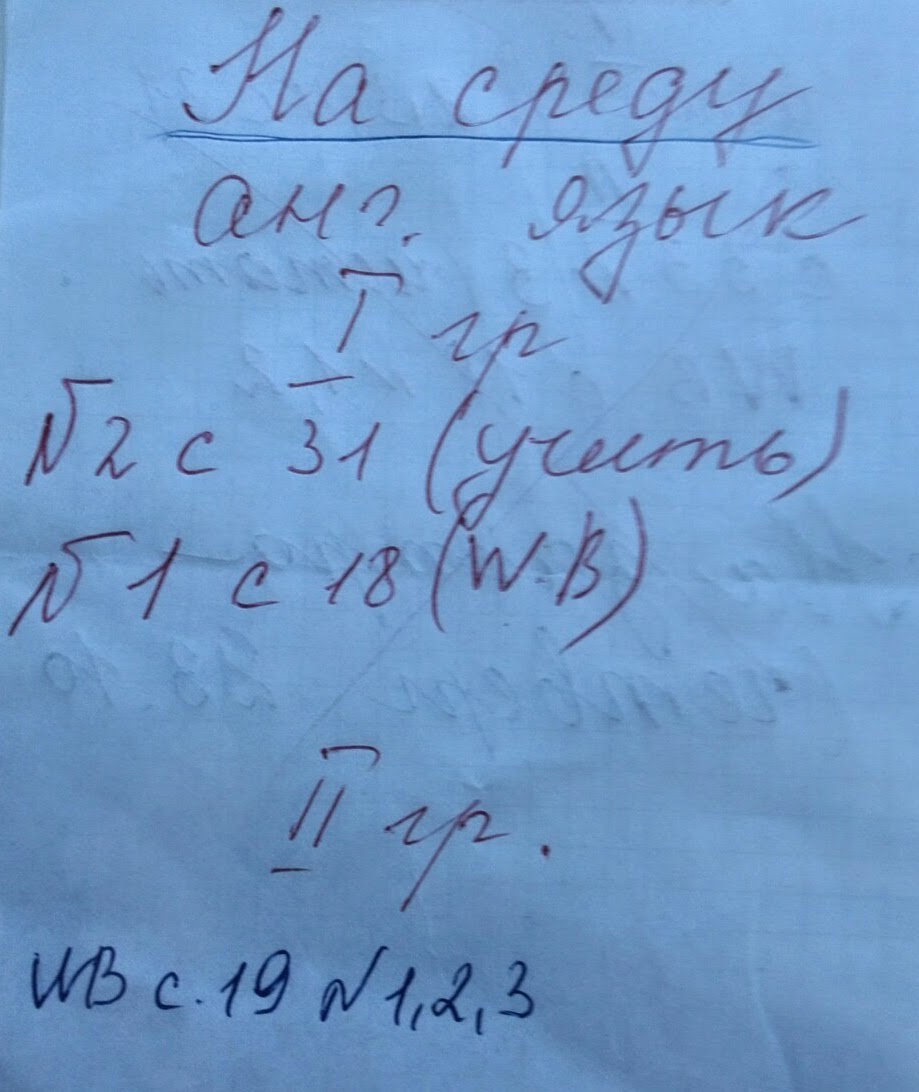 На среду
анг. язык
I гр
N2 с 31 (учить)
N1 с 18 (W.B)
II гр.
WB с. 19 N1,2,3